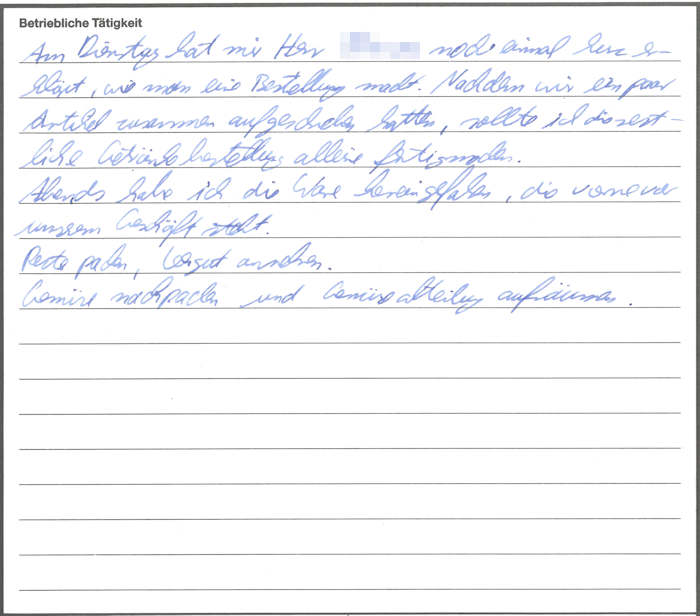 Betriebliche Tätigkeit
Am Dienstag hat mir Herr noch einmal kurz er-
klärt, wie man eine Bestellung macht. Nachdem wir ein paar
Artikel zusammen aufgeschrieben hatten, sollte ich die rest-
liche Getränkebestellung alleine fertigmachen.
Abends habe ich die Ware hereingefahren, die vorne vor
unserem Geschäft steht.
Reste packen, Leergut annehmen.
Gemüse nachpacken und Gemüseabteilung aufräumen.